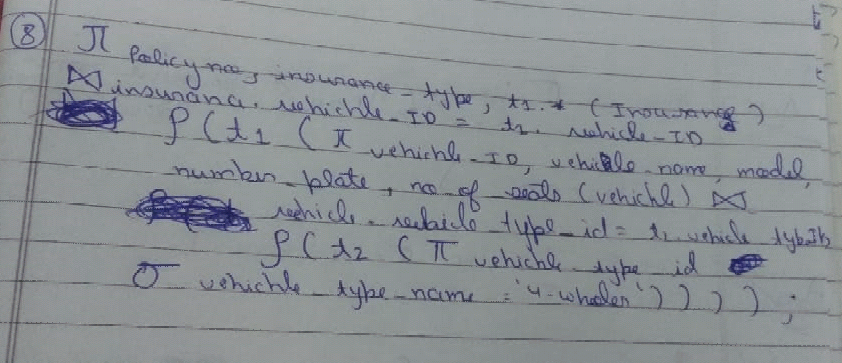 ⑧ π policy no, insurance-type, t1.* (Insurance)
⋈ insurance.vehichle-ID = t1.vehicle-ID
ρ(t1 (π vehichle-ID, vehicle name, model,
number-plate, no of seats (vehichle) ⋈
vehicle.vehicle type_id = t2.vehicle
ρ(t2 (π vehichle type id
σ vehichle type-name = '4-wheeler'))));